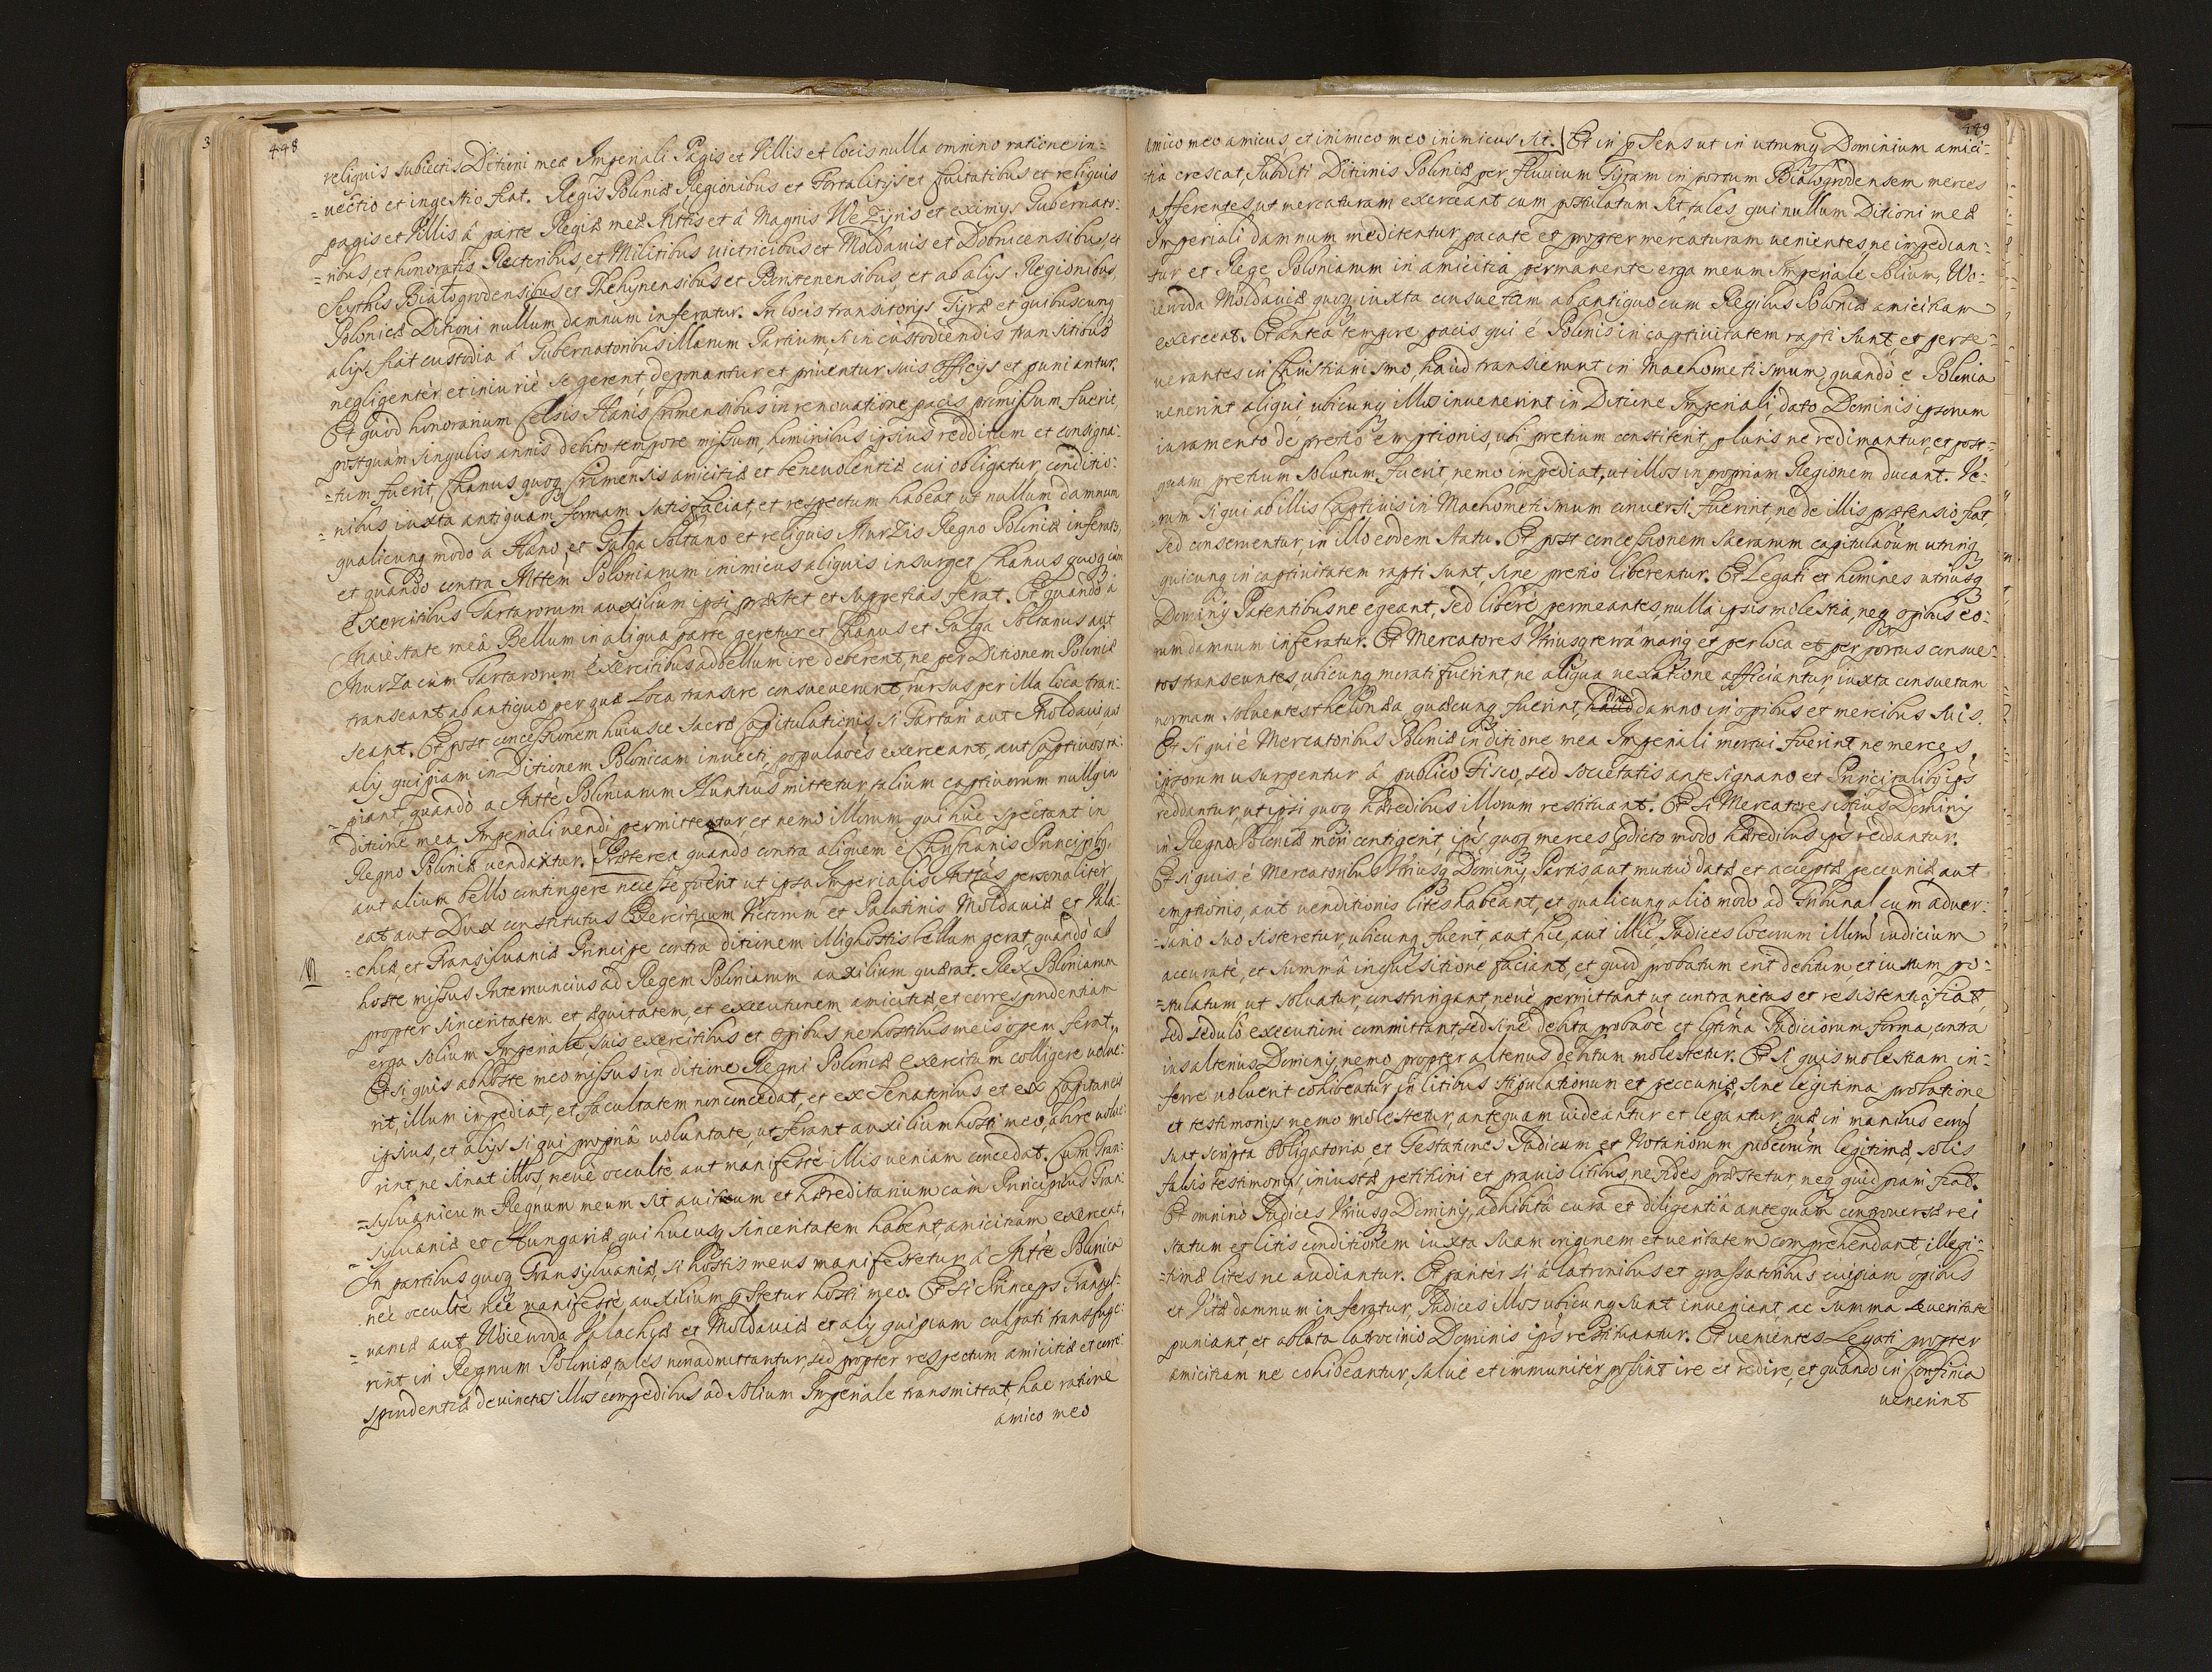 448
reliquis subiectis Ditioni meæ Imperiali Pagis et Villis et locis nulla omnino ratione in-
=uectio et ingestio fiat. Regis Poloniæ Regionibus et Fortalitijs et Ciuitatibus et reliquis
pagis et Villis â parte Regiæ meæ Mttis et â Magnis Wezyris et eximijs Gubernato:
=ribus et honoratis Rectoribus, et Militibus uictricibus et Moldauis et Dobrucensibus, et
Scythis Białogrodensibus et Thehynensibus et Benderensibus, et ab alijs Regionibus,
Polonicæ Ditioni nullum damnum inferatur. In locis transitorijs Tyræ et quibuscunq
alijs fiat custodia â Gubernatoribus illarum Partium, si in custodiendis transitibus
negligenter et iniuriè se gerent, deponantur et priuentur suis officijs et puniantur.
Et quod honorarium Celsis Hanis Crimensibus in renouatione pacis promissum fuerit
postquàm singulis annis debito tempore missum, hominibus ipsius redditum et consigna:
=tum fuerit, Chanus quoq Crimensis amicitiæ et beneuolentiæ cui obligatur, conditio:
=nibus iuxta antiquam formam satisfaciat, et respectum habeat ut nullum damnum
qualicunq modo a Hano, et Gałga Soltano et reliquis Murzis Regno Poloniæ inferatr,
et quando contra Mttem Poloniarum inimicus aliquis insurget Chanus quoq cum
Exercitibus Tartarorum auxilium ipsi præstet et suppetias ferat. Et quando â
Maiestate meâ Bellum in aliqua parte geretur et Chanus et Gałga Soltanus aut
Murza cum Tartarorum Exercitibus ad bellum ire deberent, ne per Ditionem Poloniæ
transeant, ab antiquo per quæ loca transire consueuerunt, rursus per illa loca tran:
seant. Et post concessionem huiusce Sacræ Capitulationis, si Tartari aut Moldaui aut
alij quipiam in Ditionem Polonicam inuecti, populaoes exerceant, aut Captiuos ra:
=piant, quandò a Mtte Poloniarum Nuntius mittetur, talium captiuorum nullq in
ditione mea Imperiali uendi permittentur, et nemo illorum qui huc spectant in
Regno Poloniæ uendantur. Præterea quando contra aliquem è Christianis Principibq,
aut alium bello contingere necesse fuerit ut ipsa Imperialis Mttas personaliter
eat aut Dux constitutus Exercituum Victorum et Palatinis Moldauiæ et Vala:
=chiæ, et Transiluaniæ Principe contra ditionem illiq hostis bellum gerat, quandò ab
hoste missus Internuncius ad Regem Poloniarum auxilium quærat. Rex Poloniarum
propter sinceritatem et æquitatem, et executionem amicitiæ et correspondentiam
erga solium Imperiale, suis exercitibus et opibus ne hostibus meis opem ferat,,
Et si quis ab hoste meo missus in ditione Regni Poloniæ exercitum colligere uolue:
rit, illum impediat, et facultatem non concedat, et ex Senatoribus et ex Capitaneis
ipsius, et alijs si qui propriâ uoluntate, ut ferant auxilium hosti meo, abire uolue:
rint, ne sinat illos, neuè occultè aut manifestè illis ueniam concedat. Cum Tran:
=syluanicum Regnum meum sit auitum et hæreditarium cum Principibus Tran:
syluaniæ et Hungariæ, qui hucusq sinceritatem habent, amicitiam exerceat,
In partibus quoq Transyluaniæ, si hostis meus manifestetur, â Mtte Polonica
nec occultè nec manifestè auxilium pstetur hosti meo. Et si Princeps Transyl:
=uaniæ aut Woiewoda Valachiæ et Moldauiæ et alij quipiam culpati transfuge:
rint in Regnum Poloniæ, tales non admittantur, sed propter respectum amicitiæ et corre:
spondentiæ deuinctos illos compedibus ad solium Imperiale transmittat, hac ratione
amico meo
449
amico meo amicus, et inimico meo inimicus sit. Et in psens ut in utrumq Dominium amici-
tia crescat, Subditi Ditionis Poloniæ per fluuium Tyram in portum Białogrodensem merces
afferentes, ut mercaturam exerceant cum postulatum sit, tales, qui nullum Ditioni meæ
Imperiali damnum meditentur, pacatè et propter mercaturam uenientes, ne impedian:
tur et Rege Poloniarum in amicitia permanente erga meum Imperiale solium, Wo:
iewoda Moldauiæ quoq iuxta consuetam ab antiquo cum Regibus Poloniæ amicitiam
exerceat. Et antea tempore pacis qui è Polonis in captiuitatem rapti sunt, et perse:
uerantes in Christianismo, haud transierunt in Machometismum, quandò è Polonia
uenerint aliqui, ubicunq illos inuenerint in Ditione Imperiali, dato Dominis ipsorum
iuramento de pretio emptionis, ubi pretium constiterit, pluris ne redimantur, et post:
quam pretium solutum fuerit, nemo impediat, ut illos in propriam Regionem ducant. Ve:
rum si qui ab illis Captiuis in Machometismum conuersi fuerint, ne de illis prætensio fiat,
sed conseruentur, in illo eodem statu. Et post concessionem sacrarum capitulaoum utrinq
quicunq in captiuitatem rapti sunt, sine pretio liberentur. Et Legati et homines utriusq
Dominij Patentibus ne egeant, sed liberè permeantes, nulla ipsis molestia, neq opibus eo:
rum damnum inferatur. Et Mercatores Vtriusq terrâ mariq et per loca et per portus consue:
tos transeuntes, ubicunq morati fuerint, ne aliqua uexatione afficiantur, iuxta consuetam
normam soluentes thelonea quæcunq fuerint, haud damno in opibus et mercibus suis.
Et si qui è Mercatoribus Poloniæ in ditione mea Imperiali mortui fuerint, ne merces
ipsorum usurpentur â publico fisco, sed societatis antesignano et Principalibq ips
reddantur, ut ipsi quoq hæredibus illorum restituant. Et si Mercatores istius Dominij
in Regno Poloniæ mori contigerit, ips quoq merces pdicto modo hæredibus ips reddantur.
Et si quis è Mercatoribus Vtriusq Dominij Partis aut mutuò datæ et acceptæ peccuniæ, aut
emptionis, aut uenditionis lites habeant, et qualicunq alio modo ad Tribunal cum aduer:
=sario suo sisteretur, ubicunq fuerit, aut hic, aut illic, Iudices locorum illorum iudicium
accuratè, et summâ inquisitione faciant, et quid probatum erit debitum et iustum po:
=stulatum ut soluatur, constringant, neuè permittant ut contrarietas et resistentia fiat,
sed sedulò executioni committant, sed sine debita probaoe et lgtima Iudiciorum forma, contra
ius alterius Dominij, nemo propter alterius debitum molestetur. Et si quis molestiam in-
ferre uoluerit cohibeatur, in litibus stipulationum et peccuniæ, sine legitima probatione
et testimonijs nemo molestetur, antequam uideantur et legantur, quæ in manibus eorum
sunt scripta obligatoria, et Testationes Iudicum et Notariorum publicorum legitimæ, solis
falsis testimonijs, iniustæ petitioni et prauis litibus, ne fides præstetur, neq quidpiam fiat.
Et omninò Iudices Vtriusq Dominij, adhibitâ cura et diligentiâ antequàm controuersæ rei
statum et litis conditionem iuxta suam originem et ueritatem comprehendant, illegi:
=timæ lites ne audiantur. Et pariter si â latronibus et grassatoribus cuipiam opibus
et Vitæ damnum inferatur, Iudices illos ubicunq sunt inueniant, ac summa seueritate
puniant, et ablata latrocinio Dominis ips restituantur. Et uenientes Legati propter
amicitiam ne cohibeantur, saluè et immuniter possint ire et redire, et quando in Confinia
uenerint